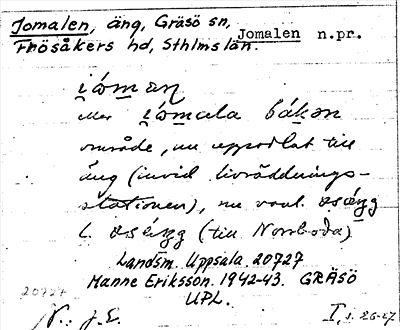 Jomalen, äng, Gräsö sn,
Frösåkers hd, Sthlms län. Jomalen n.pr.
i̯óman
eller i̯ómala bákən
område, nu uppodlat till
äng (invid livräddnings-
stationen), nu vanl.
l. (till Norrboda)
Landsm. Uppsala. 20727
Manne Eriksson. 1942-43. GRÄSÖ
UPL.
20727
N.: J.E. I, s. 26-27